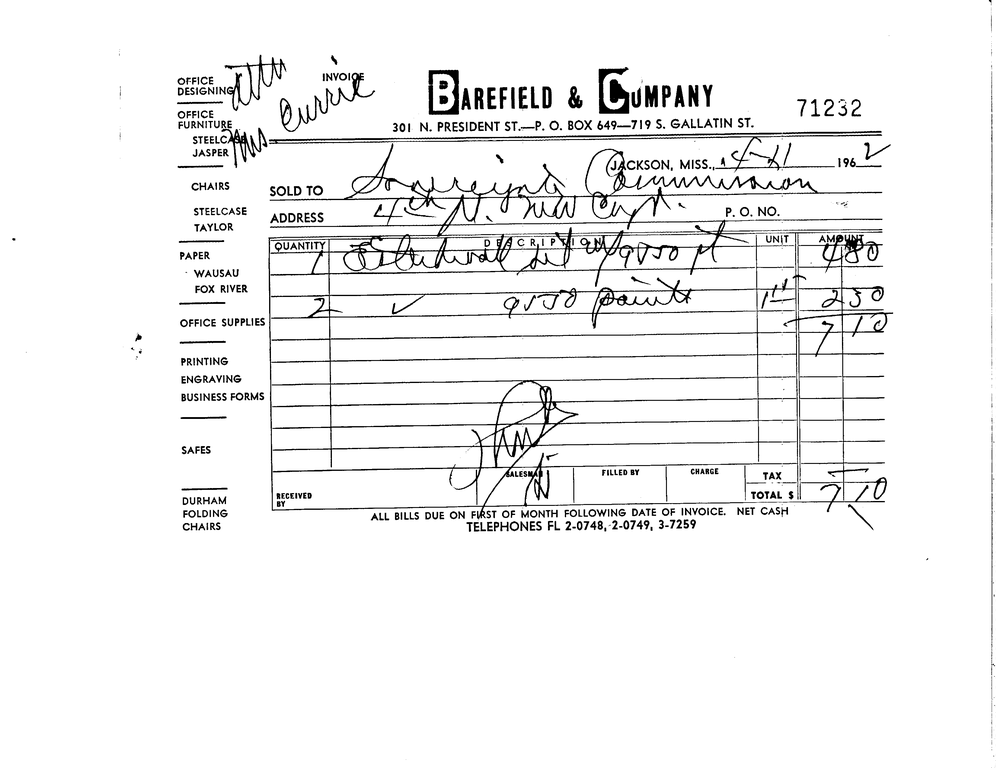 OFFICE DESIGNING
OFFICE FURNITURE
STEELCASE
JASPER
CHAIRS
STEELCASE
TAYLOR
PAPER
WAUSAU
FOX RIVER
OFFICE SUPPLIES
PRINTING
ENGRAVING
BUSINESS FORMS
SAFES
DURHAM
FOLDING
CHAIRS
attn
Mrs Currie
INVOICE
BAREFIELD & COMPANY
71232
301 N. PRESIDENT ST.—P. O. BOX 649—719 S. GALLATIN ST.
JACKSON, MISS., 4-11 1962
SOLD TO Sovereignty Commission
ADDRESS 4th fl. New Capt. P. O. NO.
QUANTITY DESCRIPTION UNIT AMOUNT
1 Esterbrook set w/9550 pt 4 80
2 ✓ 9550 points 1 15 2 30
7 10
RECEIVED BY SALESMAN FILLED BY CHARGE TAX —
TOTAL $ 7 10
ALL BILLS DUE ON FIRST OF MONTH FOLLOWING DATE OF INVOICE. NET CASH
TELEPHONES FL 2-0748, 2-0749, 3-7259